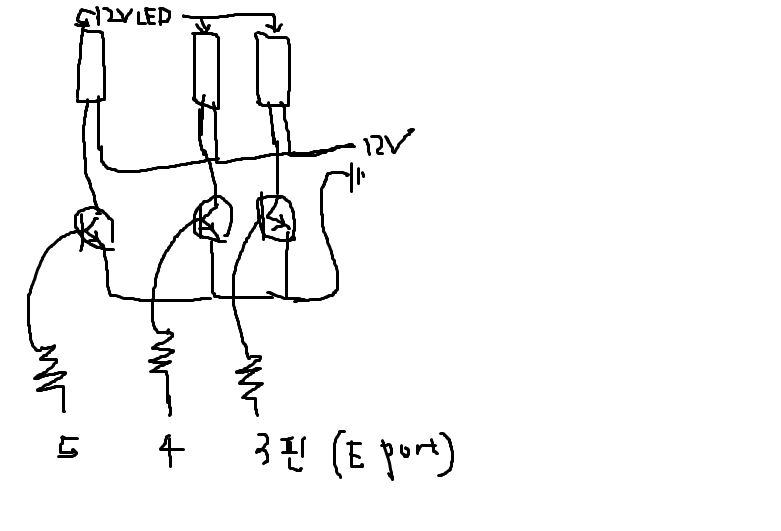 12V LED
12V
5 4 3핀 (E port)